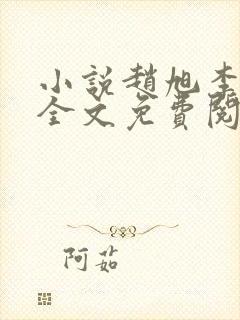 小說趙旭李
全文免費閱
阿茹